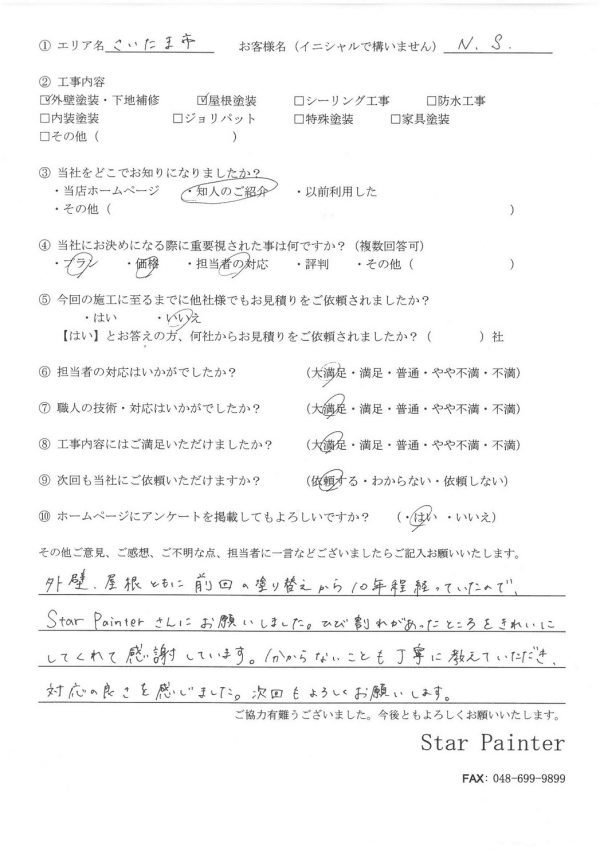 ① エリア名 さいたま市 お客様名（イニシャルで構いません） N. S.
② 工事内容
☑外壁塗装・下地補修 ☑屋根塗装 □シーリング工事 □防水工事
□内装塗装 □ジョリパット □特殊塗装 □家具塗装
□その他（ ）
③ 当社をどこでお知りになりましたか？
・当店ホームページ ・知人のご紹介 ・以前利用した
・その他（ ）
④ 当社にお決めになる際に重要視された事は何ですか？（複数回答可）
・プラン ・価格 ・担当者の対応 ・評判 ・その他（ ）
⑤ 今回の施工に至るまでに他社様でもお見積りをご依頼されましたか？
・はい ・いいえ
【はい】とお答えの方、何社からお見積りをご依頼されましたか？（ ）社
⑥ 担当者の対応はいかがでしたか？ （大満足・満足・普通・やや不満・不満）
⑦ 職人の技術・対応はいかがでしたか？ （大満足・満足・普通・やや不満・不満）
⑧ 工事内容にはご満足いただけましたか？ （大満足・満足・普通・やや不満・不満）
⑨ 次回も当社にご依頼いただけますか？ （依頼する・わからない・依頼しない）
⑩ ホームページにアンケートを掲載してもよろしいですか？ （・はい・いいえ）
その他ご意見、ご感想、ご不明な点、担当者に一言などございましたらご記入お願いいたします。
外壁、屋根ともに前回の塗り替えから10年程経っていたので、
Star Painterさんにお願いしました。ひび割れがあったところをきれいに
してくれて感謝しています。分からないことも丁寧に教えていただき、
対応の良さを感じました。次回もよろしくお願いします。
ご協力有難うございました。今後ともよろしくお願いいたします。
Star Painter
FAX: 048-699-9899